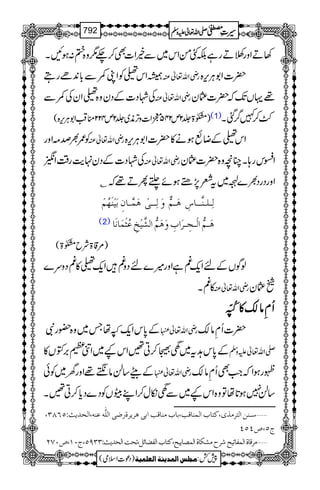 سیرتِ مصطفیٰ صلی اللہ تعالیٰ علیہ وسلم 792
کھاتے اور کھلاتے رہے بلکہ کئی من اس میں سے خیرات بھی کر چکے مگر وہ ختم نہ ہوئیں۔
حضرت ابوہریرہ رضی اللہ تعالیٰ عنہ ہمیشہ اس تھیلی کو اپنی کمر سے باندھے رہتے تھے
یہاں تک کہ حضرت عثمان رضی اللہ تعالیٰ عنہ کی شہادت کے دن وہ تھیلی ان کی کمر سے
کٹ کر کہیں گر گئی۔ (1)
اس تھیلی کے ضائع ہونے کا حضرت ابوہریرہ رضی اللہ تعالیٰ عنہ کو عمر بھر صدمہ اور
افسوس رہا۔ چنانچہ وہ حضرت عثمان رضی اللہ تعالیٰ عنہ کی شہادت کے دن نہایت رقت انگیز
اور درد بھرے لہجہ میں یہ شعر پڑھتے ہوئے چلتے پھرتے تھے کہ
لِلنَّاسِ هَمٌّ وَلِيْ هَمَّانِ بَيْنَهُمْ
هَمُّ الْجِرَابِ وَهَمُّ الشَّيْخِ عُثْمَانَا (2)
(مرقاۃ شرح مشکوٰۃ)
لوگوں کے لئے ایک غم ہے اور میرے لئے دو غم ہیں ایک تھیلی کا غم دوسرے
شیخ عثمان رضی اللہ تعالیٰ عنہ کا غم۔
اُمِ مالک کا کُپّہ
حضرت اُمِ مالک رضی اللہ تعالیٰ عنہا کے پاس ایک کپہ تھا جس میں وہ حضور نبی
صلی اللہ تعالیٰ علیہ وسلم کے پاس ہدیہ میں گھی بھیجا کرتی تھیں اس کپے میں اتنی عظیم برکتوں کا
ظہور ہوا کہ جب بھی اُمِ مالک رضی اللہ تعالیٰ عنہا کے بیٹے سالن مانگتے تھے اور گھر میں کوئی
سالن نہیں ہوتا تھا تو وہ اس کپے میں سے گھی نکال کر اپنے بیٹوں کو دے دیا کرتی تھیں۔
سنن الترمذی، کتاب المناقب، باب مناقب ابی ھریرۃ رضی اللہ عنہ، الحدیث: ۳۸۶۵،
ج۵، ص۴۵۴
مرقاۃ المفاتیح شرح مشکاۃ المصابیح، کتاب الفضائل، تحت الحدیث: ۵۹۳۳، ج۱۰، ص۲۷۰
پیش کش: مجلس المدینۃ العلمیۃ (دعوتِ اسلامی)